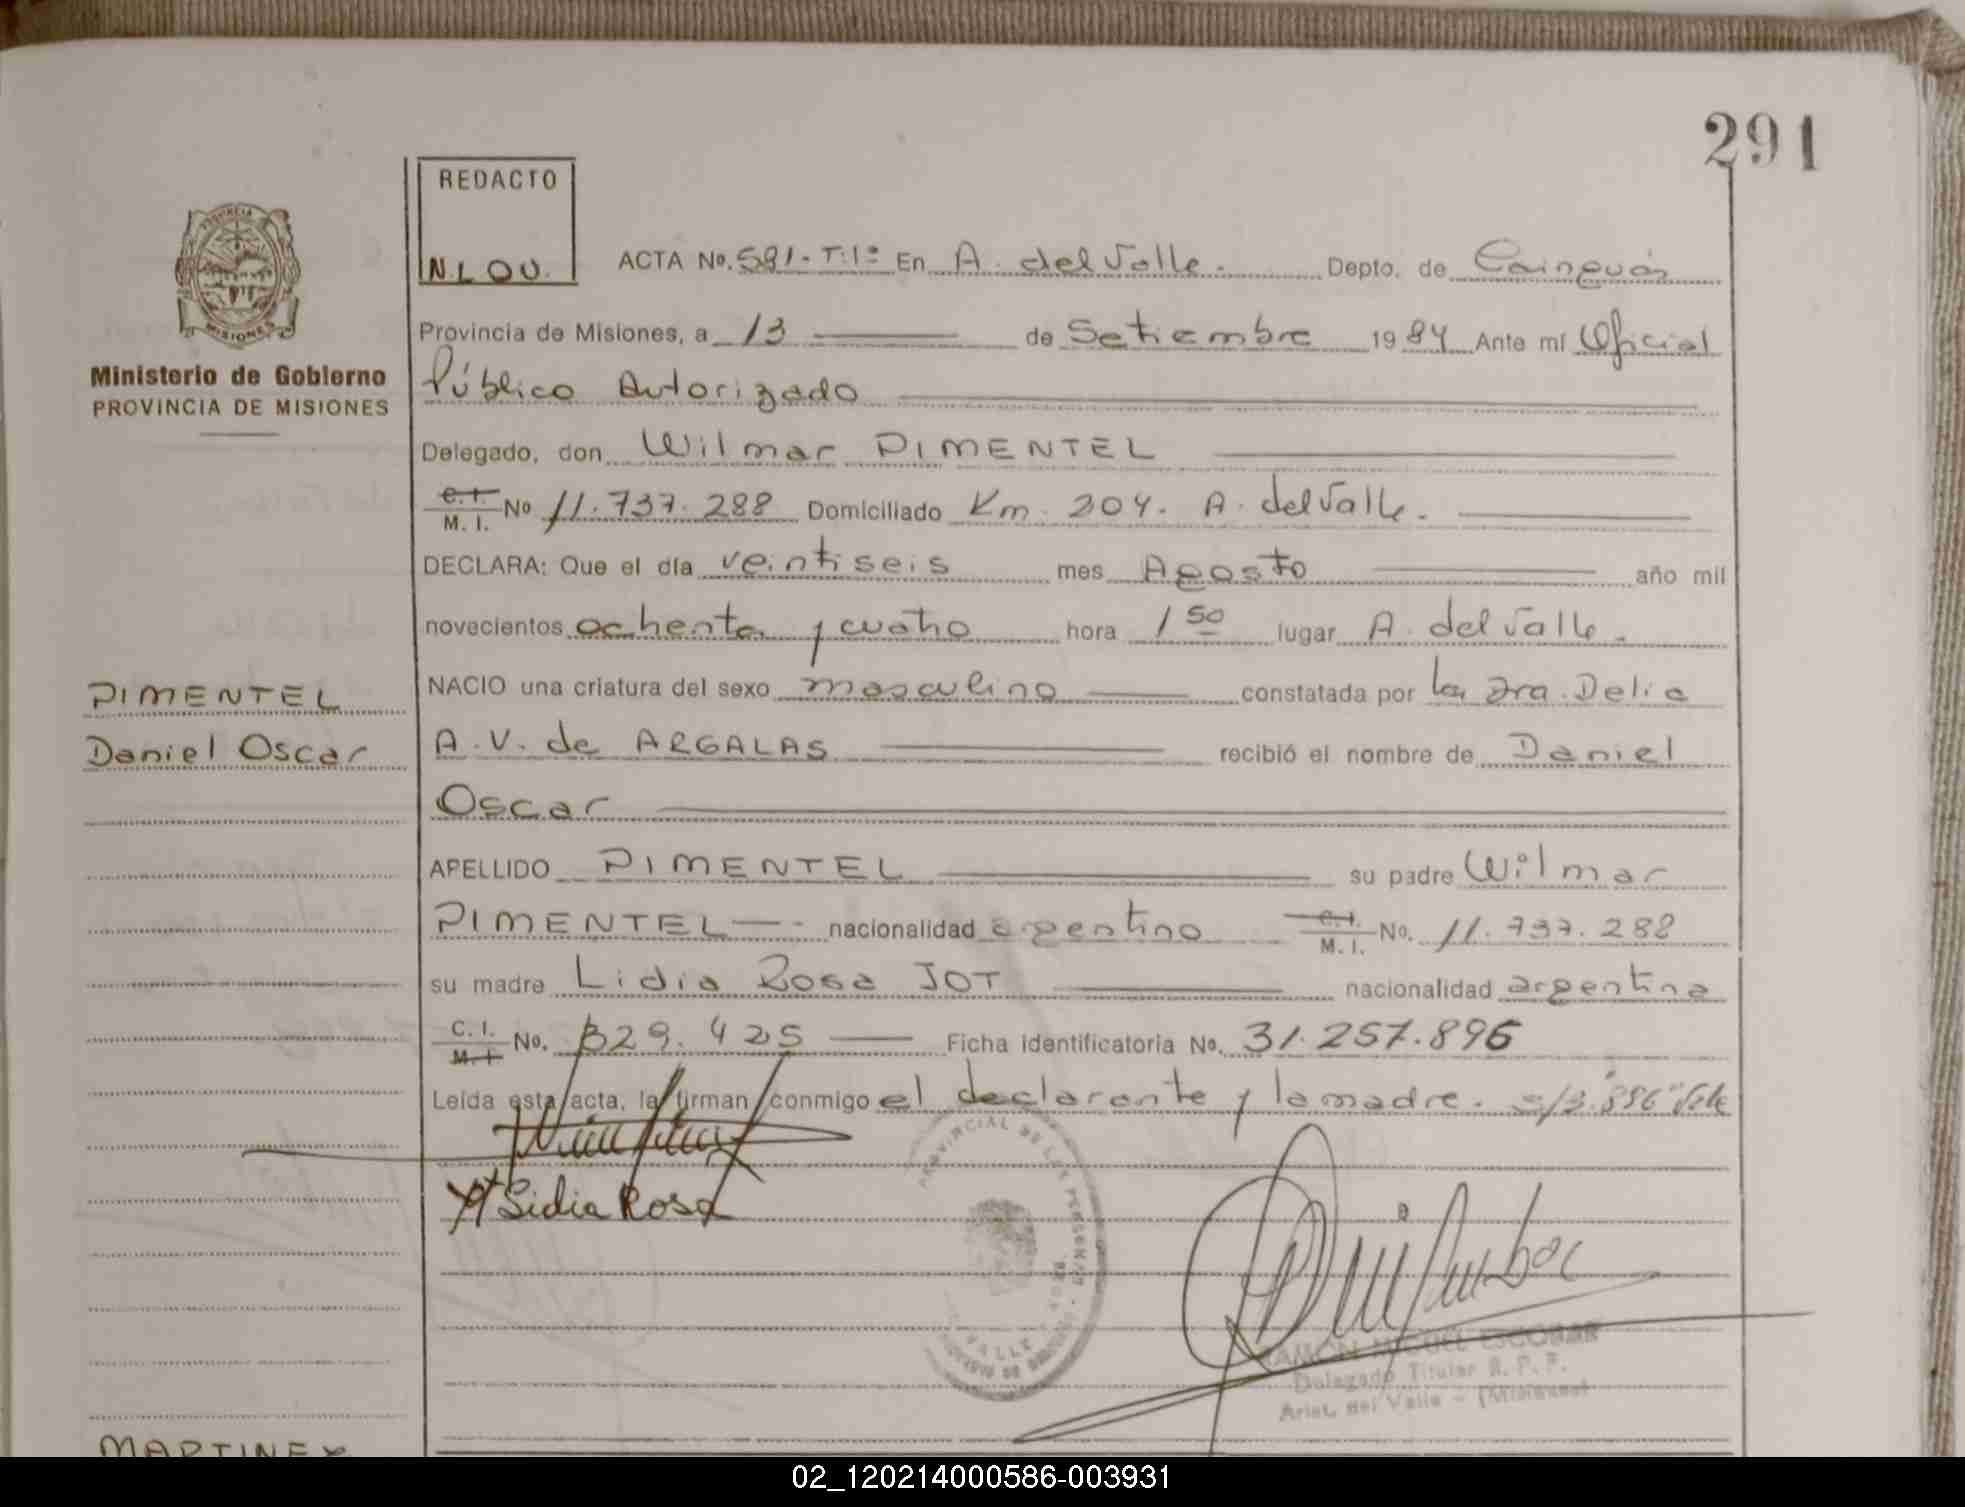 291
REDACTO
N.L.O.U.
PROVINCIA
MISIONES
Ministerio de Gobierno
PROVINCIA DE MISIONES
ACTA No. 581-T:1º En A. del Valle. Depto. de Cainguás
Provincia de Misiones, a 13 de Setiembre 1984 Ante mí Oficial
Público Autorizado
Delegado, don Wilmar PIMENTEL
C.I. M.I. No 11.737.288 Domiciliado Km. 204. A. del Valle.
DECLARA: Que el día veintiseis mes Agosto año mil
novecientos ochenta y cuatro hora 1 50 lugar A. del Valle.
NACIO una criatura del sexo masculino constatada por la Sra. Delia
A.V. de ARGALAS recibió el nombre de Daniel
Oscar
APELLIDO PIMENTEL su padre Wilmar
PIMENTEL nacionalidad argentino C.I. M.I. No. 11.737.288
su madre Lidia Rosa JOT nacionalidad argentina
C.I. M.I. No. 329.425 Ficha identificatoria No. 31.257.896
Leída esta acta, la firman conmigo el declarante y la madre. 896 Vale
Lidia Rosa
PIMENTEL
Daniel Oscar
RAMON MIGUEL ESCOBAR
Delegado Titular R. P. P.
Arist. del Valle - (Misiones)
MARTINEX
02_120214000586-003931